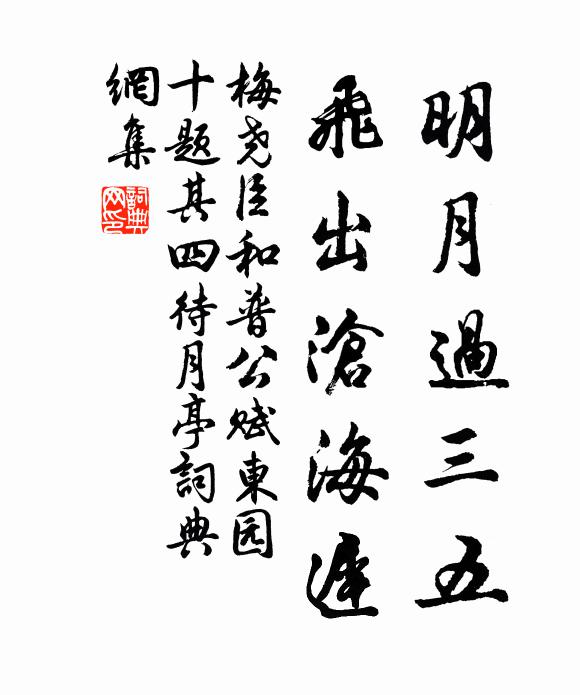 明月過三五
飛出滄海遲
梅尧臣和普公赋東园
十题其四待月亭詞典
網集
詞典网印